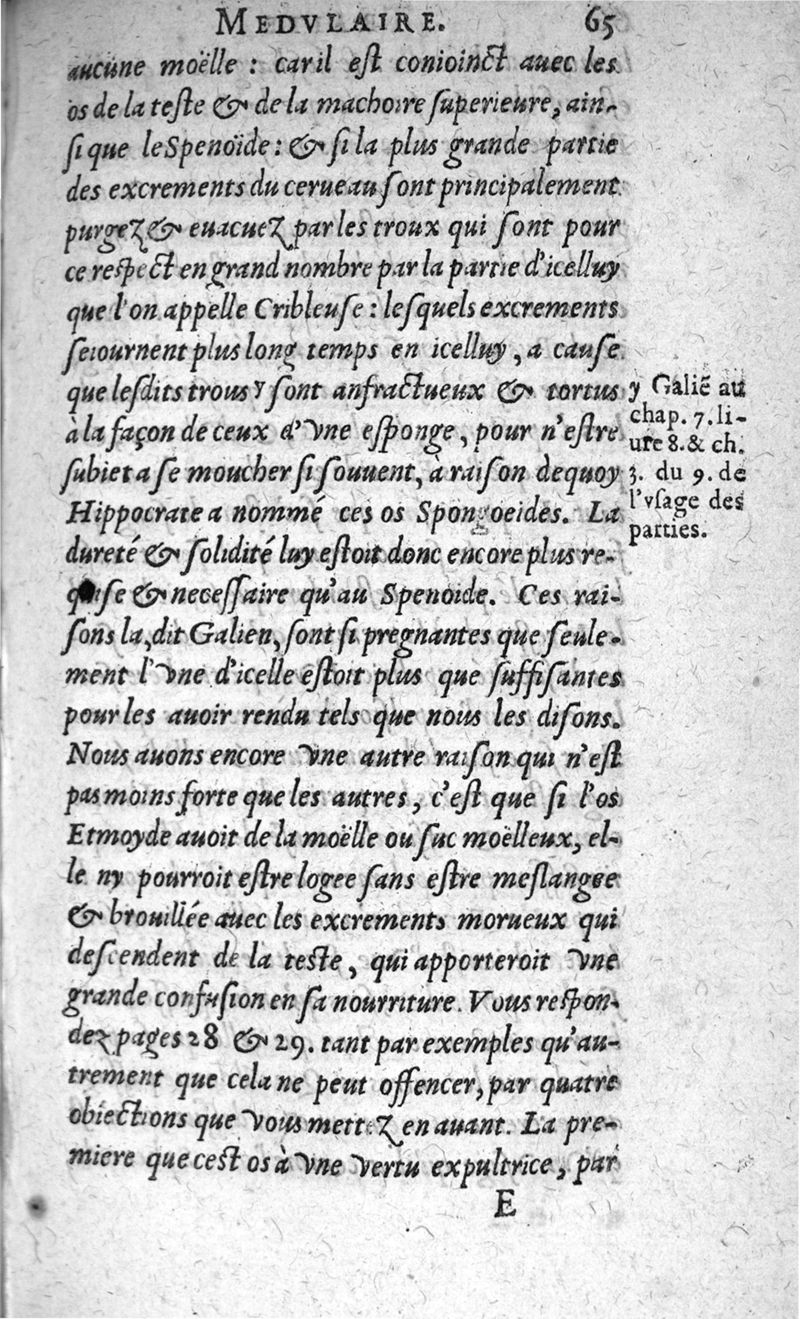 MEDVLAIRE. 65
aucune moëlle : car il eſt conioinct auec les
os de la teſte & de la machoire ſuperieure, ain-
ſi que le Spenoïde : & ſi la plus grande partie
des excrements du cerueau ſont principalement
purgez & euacuez par les troux qui ſont pour
ce reſpect en grand nombre par la partie d'icelluy
que l'on appelle Cribleuſe : leſquels excrements
ſeiournent plus long temps en icelluy, a cauſe
que leſdits trous y ſont anfractueux & tortus
à la façon de ceux d'vne eſponge, pour n'eſtre
ſubiet a ſe moucher ſi ſouuent, à raiſon dequoy
Hippocrate a nommé ces os Spongoeides. La
dureté & ſolidité luy eſtoit donc encore plus re-
quiſe & neceſſaire qu'au Spenoide. Ces rai-
ſons la, dit Galien, ſont ſi pregnantes que ſeule-
ment l'vne d'icelle eſtoit plus que ſuffiſantes
pour les auoir rendu tels que nous les diſons.
Nous auons encore vne autre raiſon qui n'eſt
pas moins forte que les autres, c'eſt que ſi l'os
Etmoyde auoit de la moëlle ou ſuc moëlleux, el-
le ny pourroit eſtre logee ſans eſtre meſlangee
& brouillée auec les excrements morueux qui
deſcendent de la teſte, qui apporteroit vne
grande confuſion en ſa nourriture. Vous reſpon-
dez pages 28 & 29. tant par exemples qu'au-
trement que cela ne peut offencer, par quatre
obiections que vous mettez en auant. La pre-
miere que ceſt os à vne vertu expultrice, par
E
y Galiē au
chap. 7. li-
ure 8. & ch.
3. du 9. de
l'vſage des
parties.